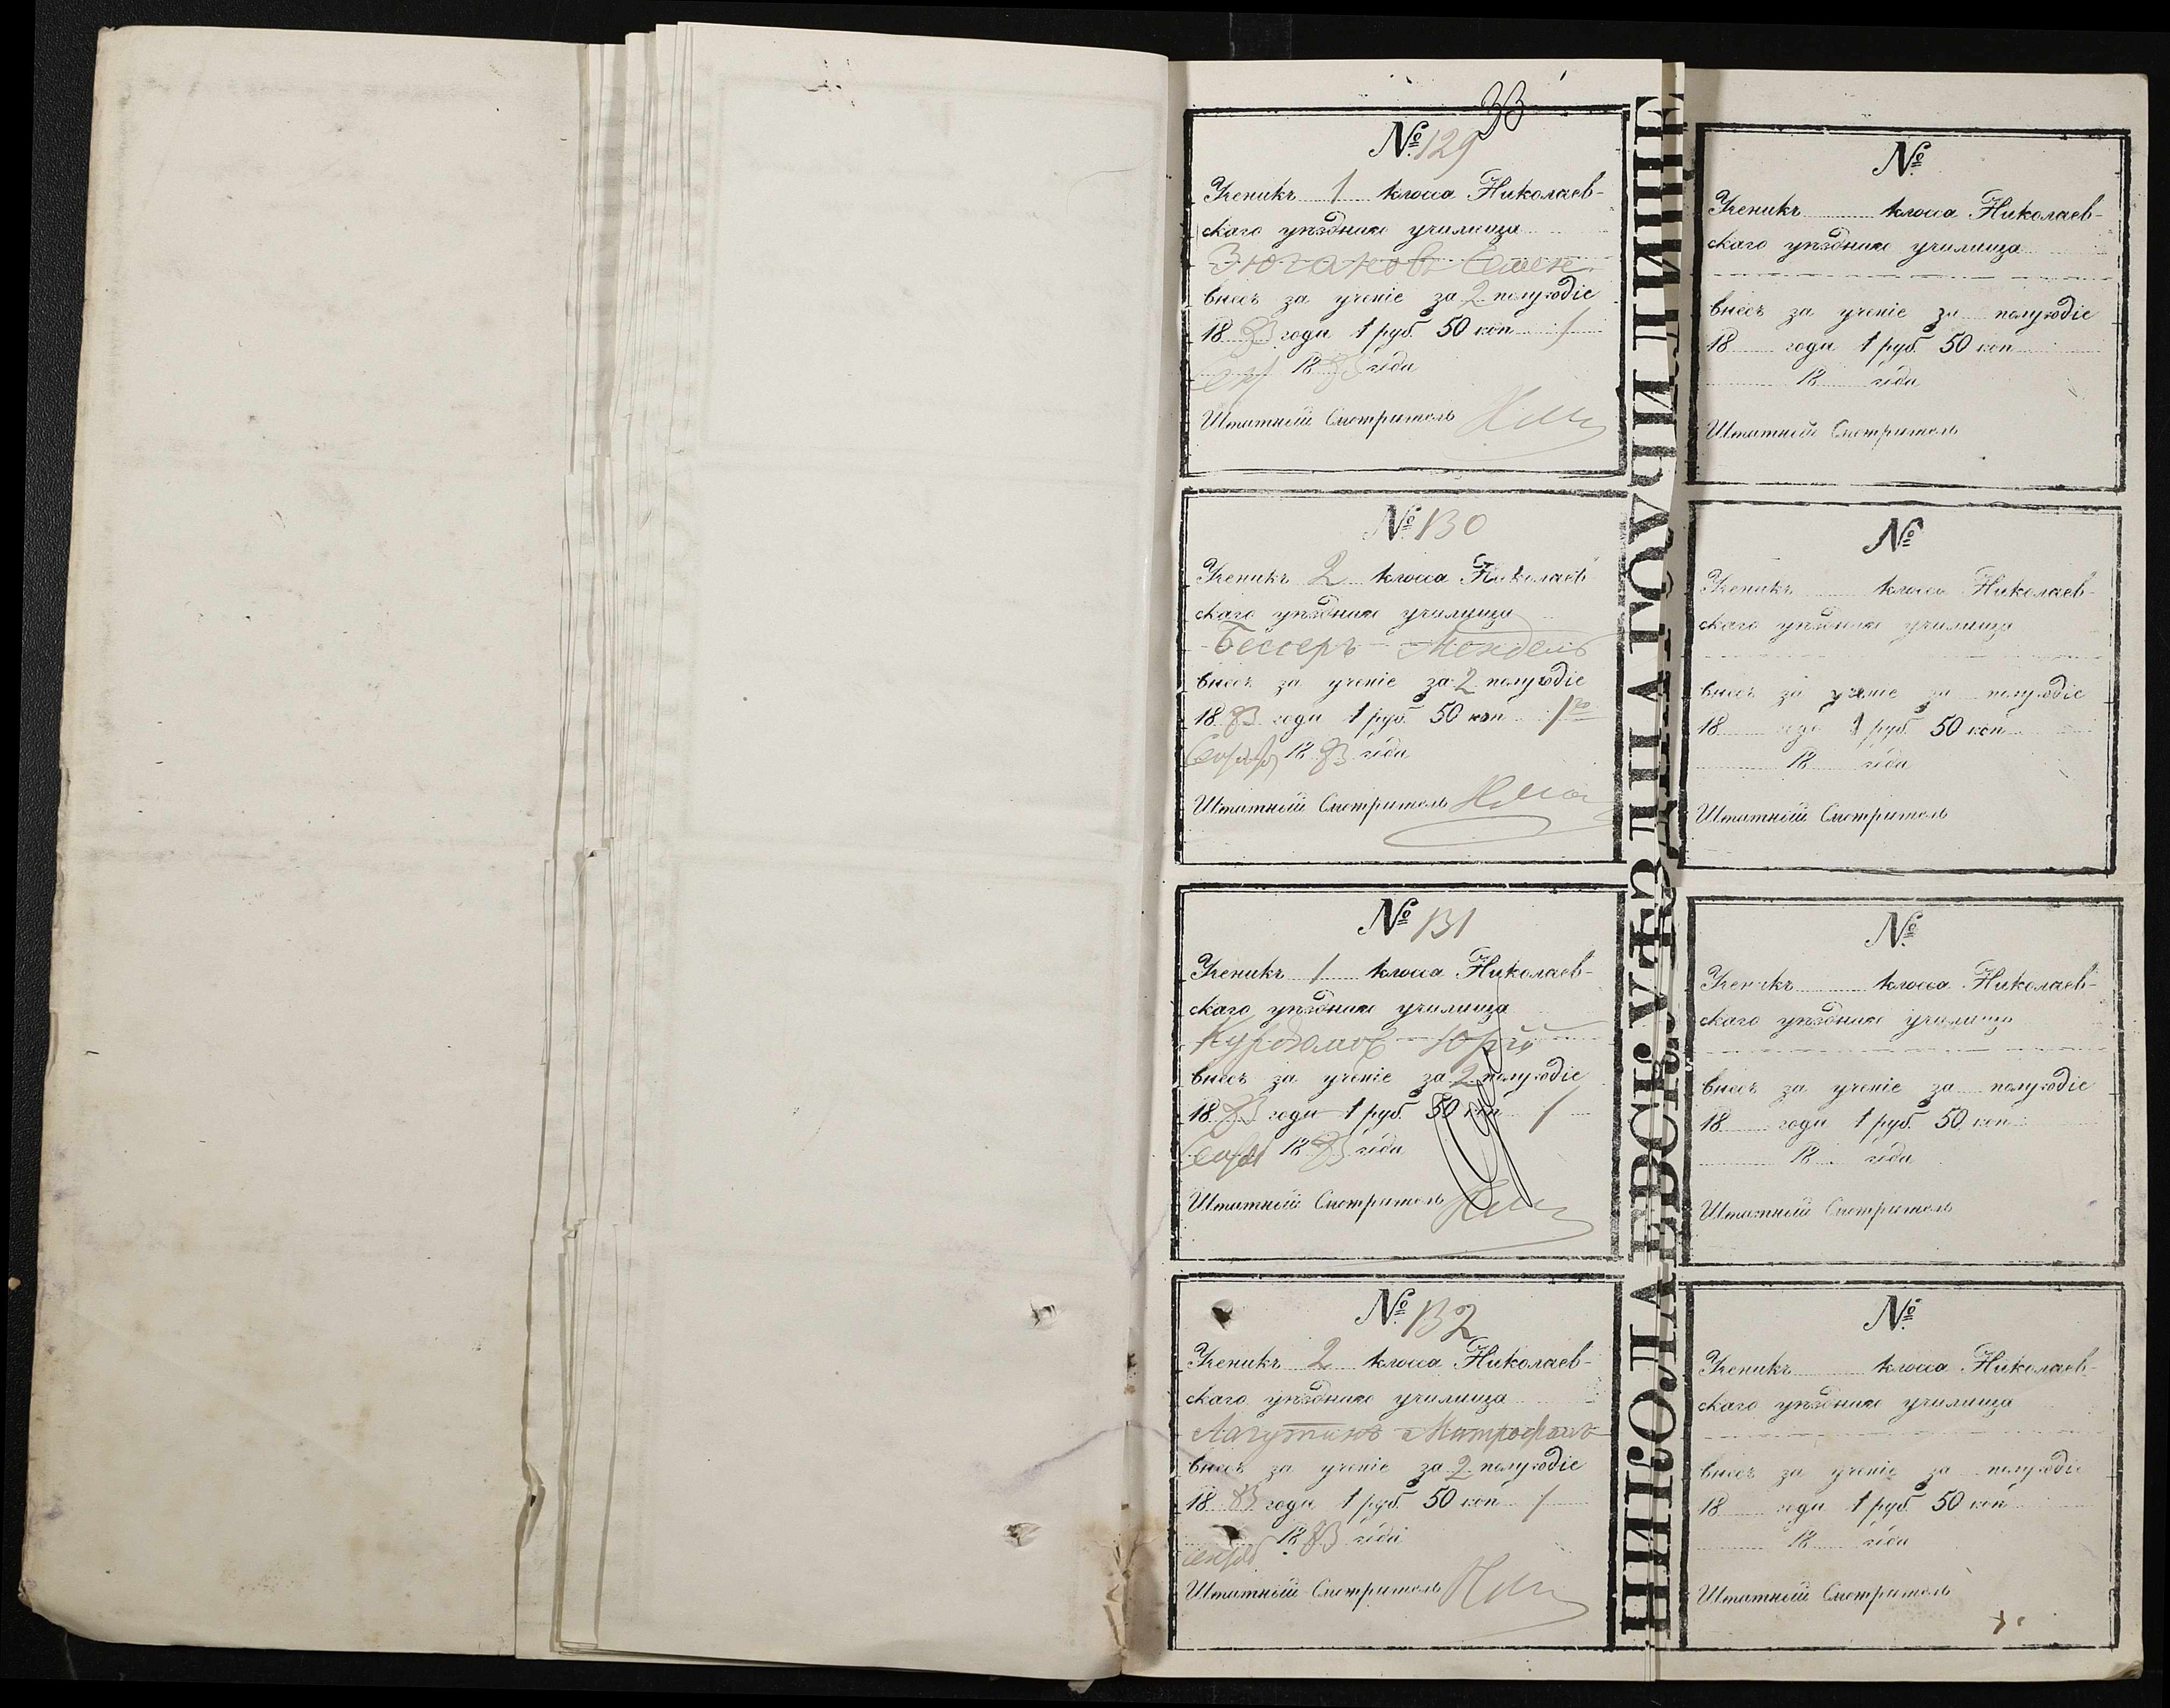 33
№ 129
Ученикъ 1 класса Николаев-
скаго уѣзднаго училища
Зюгановъ Семен
внесъ за ученіе за 2 полугодіе
18 83 года 1 руб. 50 коп. /
Сен 18 83 года
Штатный Смотритель
№ 130
Ученикъ 2 класса Николаев
скаго уѣзднаго училища
Бессеръ Мендель
внесъ за ученіе за 2 полугодіе
18 83 года 1 руб. 50 коп.
18 83 года
Штатный Смотритель
№ 131
Ученикъ 1 класса Николаев-
скаго уѣзднаго училища
Юрій
внесъ за ученіе за 2 полугодіе
18 83 года 1 руб. 50 коп. /
18 83 года
Штатный Смотритель
№ 132
Ученикъ 2 класса Николаев-
скаго уѣзднаго училища
Лагутинъ Митрофанъ
внесъ за ученіе за 2 полугодіе
18 83 года 1 руб. 50 коп. /
18 83 года
Штатный Смотритель
НИКОЛАЕВСК. УѢЗДНАГО УЧИЛИЩЕ
№
Ученикъ класса Николаев-
скаго уѣзднаго училища
внесъ за ученіе за полугодіе
18 года 1 руб. 50 коп
18 года
Штатный Смотритель
№
Ученикъ класса Николаев-
скаго уѣзднаго училища
внесъ за ученіе за полугодіе
18 года 1 руб. 50 коп
18 года
Штатный Смотритель
№
Ученикъ класса Николаев-
скаго уѣзднаго училища
внесъ за ученіе за полугодіе
18 года 1 руб. 50 коп
18 года
Штатный Смотритель
№
Ученикъ класса Николаев-
скаго уѣзднаго училища
внесъ за ученіе за полугодіе
18 года 1 руб. 50 коп
18 года
Штатный Смотритель